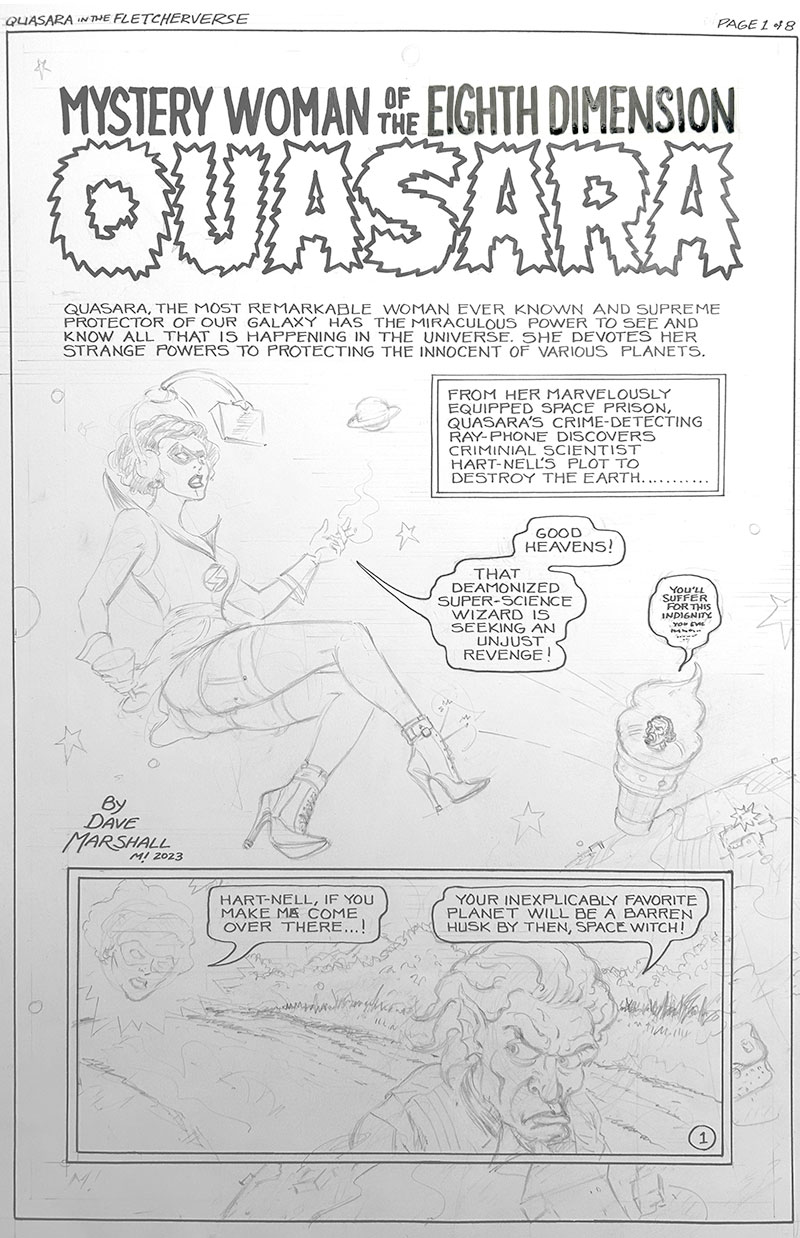 QUASARA IN THE FLETCHERVERSE
PAGE 1 of 8
MYSTERY WOMAN OF THE EIGHTH DIMENSION
QUASARA
QUASARA, THE MOST REMARKABLE WOMAN EVER KNOWN AND SUPREME
PROTECTOR OF OUR GALAXY HAS THE MIRACULOUS POWER TO SEE AND
KNOW ALL THAT IS HAPPENING IN THE UNIVERSE. SHE DEVOTES HER
STRANGE POWERS TO PROTECTING THE INNOCENT OF VARIOUS PLANETS.
FROM HER MARVELOUSLY
EQUIPPED SPACE PRISON,
QUASARA'S CRIME-DETECTING
RAY-PHONE DISCOVERS
CRIMINIAL SCIENTIST
HART-NELL'S PLOT TO
DESTROY THE EARTH..........
GOOD
HEAVENS!
THAT
DEAMONIZED
SUPER-SCIENCE
WIZARD IS
SEEKING AN
UNJUST
REVENGE!
YOU'LL
SUFFER
FOR THIS
INDIGNITY
YOU EVIL
BY
DAVE
MARSHALL
M! 2023
HART-NELL, IF YOU
MAKE ME COME
OVER THERE...!
YOUR INEXPLICABLY FAVORITE
PLANET WILL BE A BARREN
HUSK BY THEN, SPACE WITCH!
1
M!